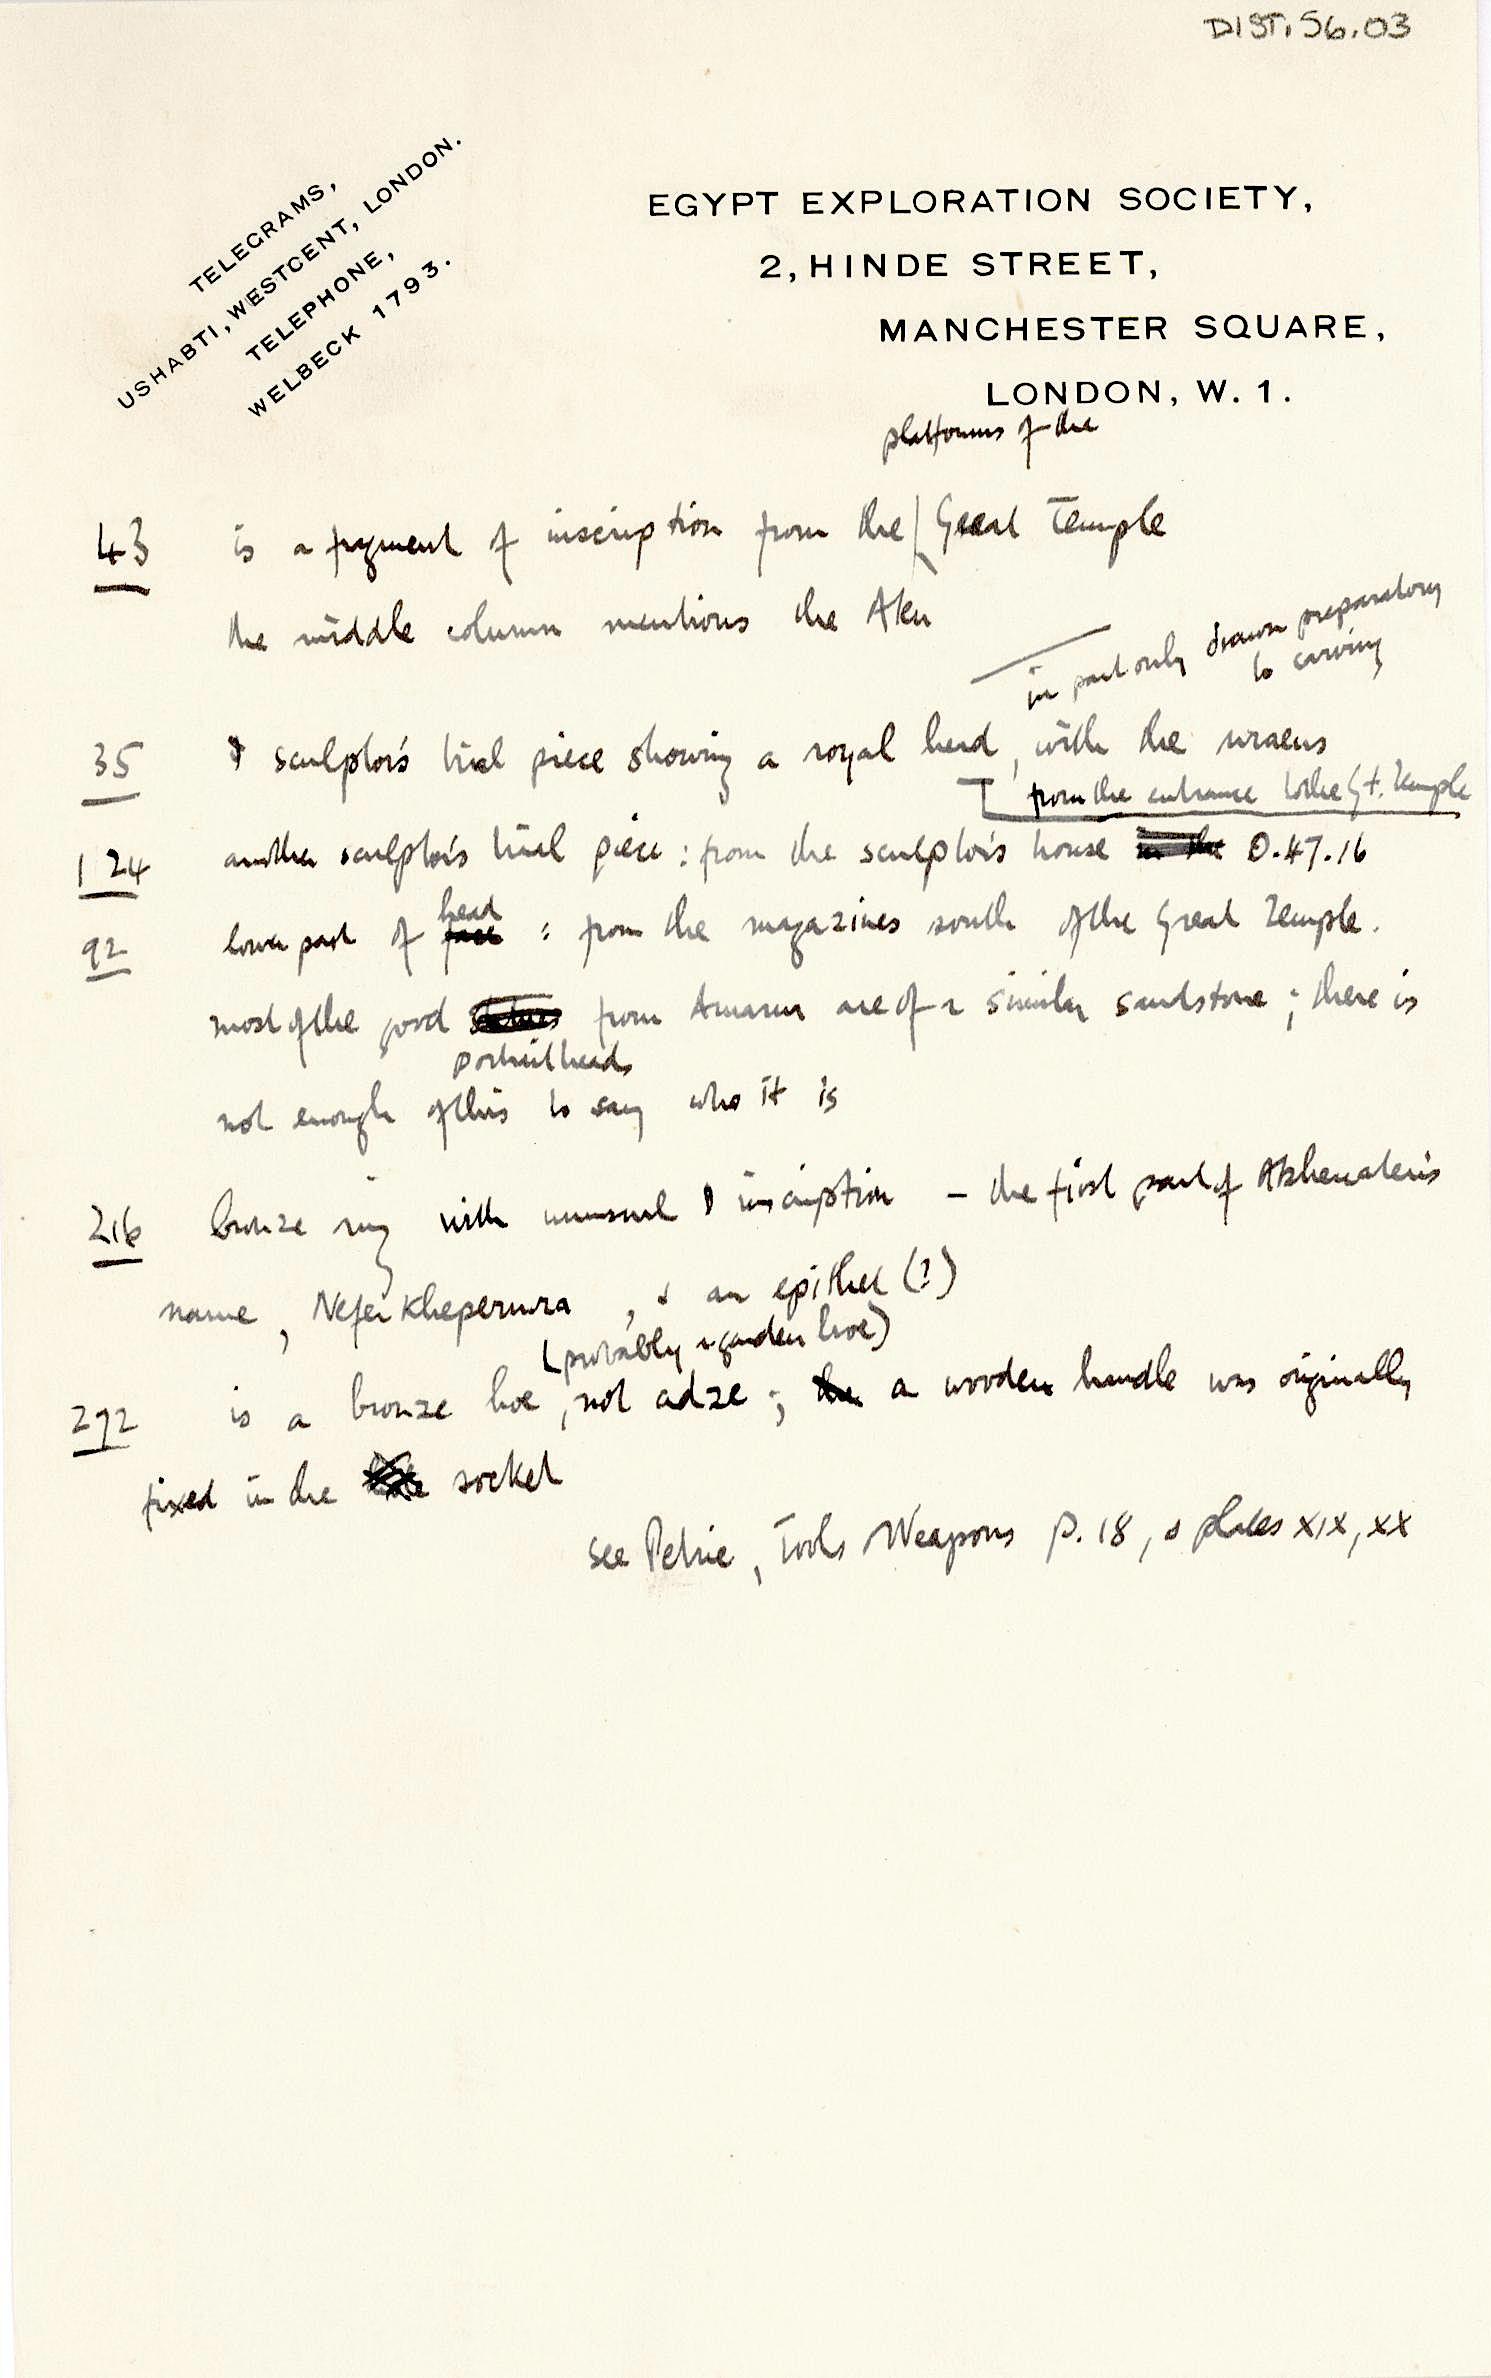 DIST.56.03
TELEGRAMS,
USHABTI, WESTCENT, LONDON.
TELEPHONE,
WELBECK 1793.
EGYPT EXPLORATION SOCIETY,
2, HINDE STREET,
MANCHESTER SQUARE,
LONDON, W. 1.
platforms of the
43 is a fragment of inscription from the Great Temple
the middle column mentions the Aten
in part only drawn preparatory
to carving
35 sculptor's trial piece showing a royal head, with the uraeus
from the entrance to the Gt. Temple
124 another sculptor's trial piece : from the sculptor's house in the O.47.16
head
92 lower part of face : from the magazines south of the Great Temple.
most of the good statues from Amarna are of a similar sandstone ; there is
portrait heads
not enough of this to say who it is
216 bronze ring with unusual inscription – the first part of Akhenaten's
name, Neferkheperura, & an epithet (?)
(probably a garden hoe)
292 is a bronze hoe, not adze ; the a wooden handle was originally
fixed in the socket
see Petrie, Tools & Weapons p. 18, & plates XIX, XX